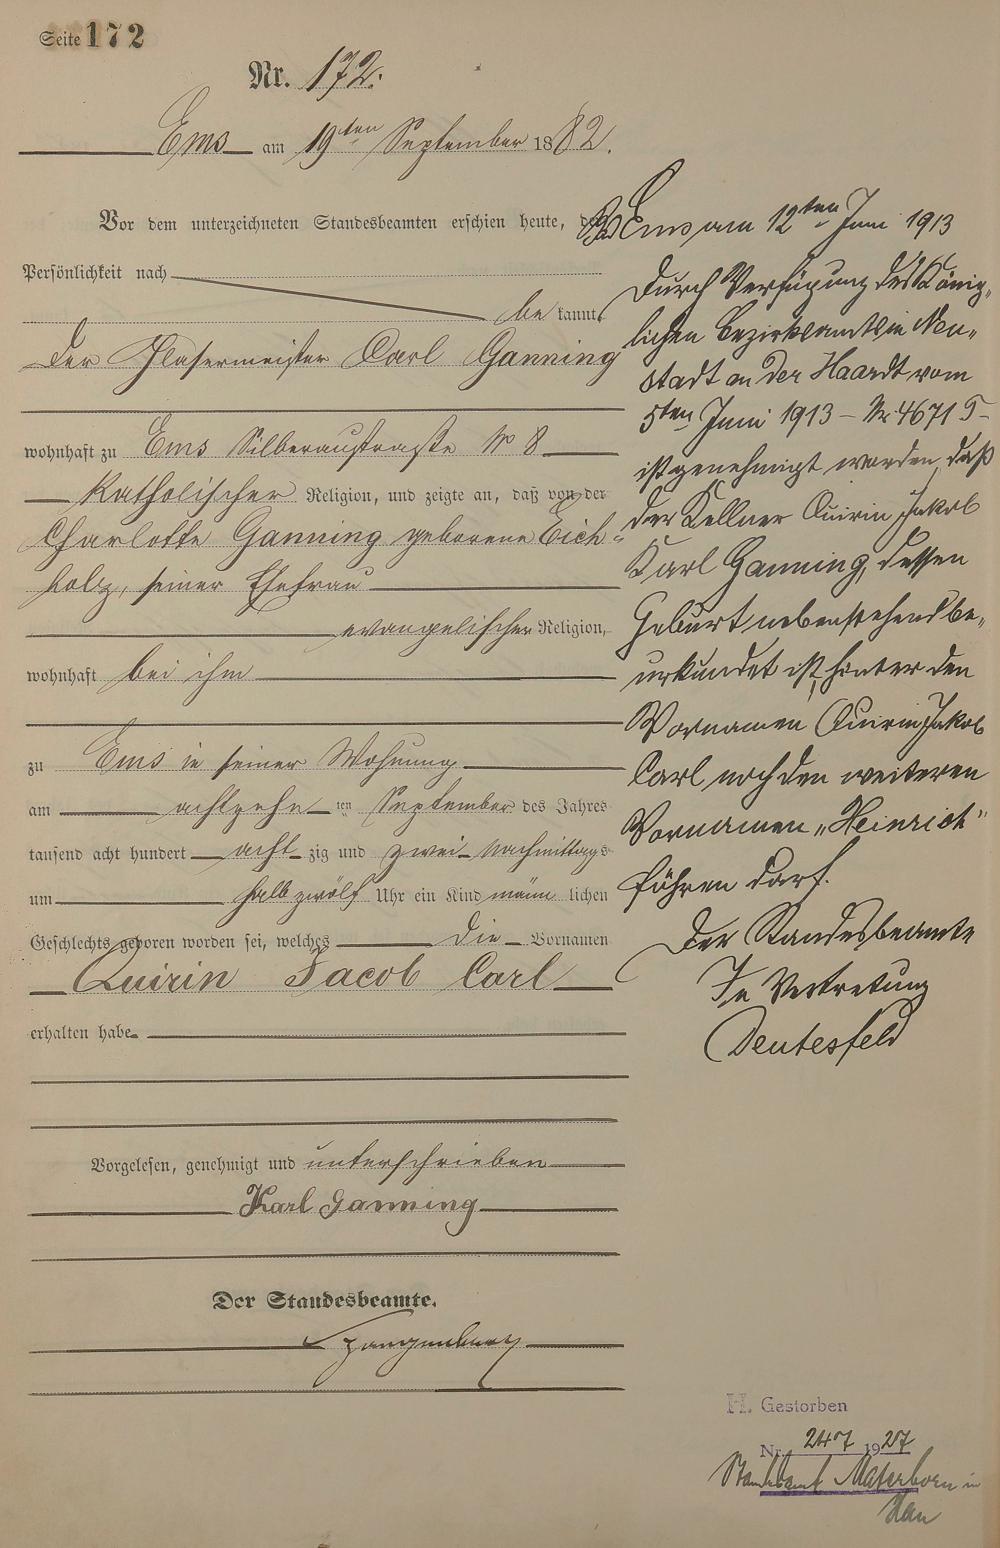 Seite 172
Nr. 172.
Ems am 19ten September 1882.
Vor dem unterzeichneten Standesbeamten erschien heute, der
Persönlichkeit nach
be kannt,
der Glasermeister Carl Ganning
wohnhaft zu Ems Silberaustraße No 8
Katholischer Religion, und zeigte an, daß von der
Charlotte Ganning geborene Eich-
holz, seiner Ehefrau
evangelischer Religion,
wohnhaft bei ihm
zu Ems in seiner Wohnung
am achtzehn ten September des Jahres
tausend acht hundert acht zig und zwei Nachmittags
um halb zwölf Uhr ein Kind männ lichen
Geschlechts geboren worden sei, welches die Vornamen
Quirin Jacob Carl
erhalten habe
Vorgelesen, genehmigt und unterschrieben
Karl Ganning
Der Standesbeamte.
Ems am 12ten Juni 1913
Durch Verfügung des König-
lichen Bezirksamts in Neu-
stadt an der Haardt vom
5ten Juni 1913 – Nr. 4671 T –
ist genehmigt worden, daß
der Kellner Quirin Jakob
Karl Ganning, dessen
Geburt nebenstehend be-
urkundet ist, hinter den
Vornamen Quirin Jakob
Carl noch den weiteren
Vornamen „Heinrich“
führen darf.
Der Standesbeamte
In Vertretung
Deutesfeld
H. Gestorben
Nr. 247 1927
Standesamt Materborn in